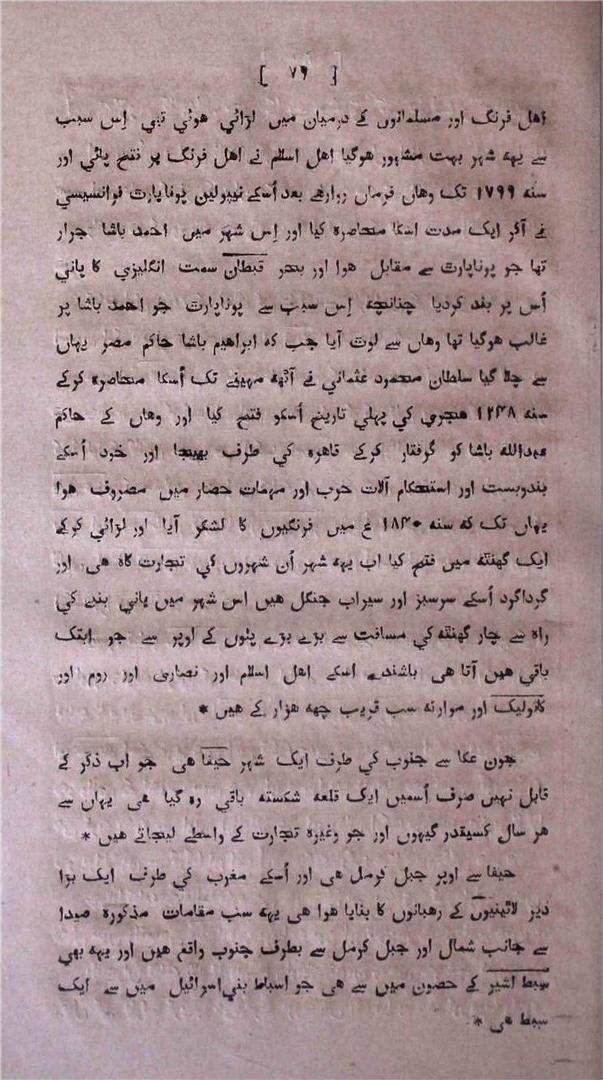 [ ٧٦ ]
اهل فرنگ اور مسلمانوں کے درمیان میں لڑائي هوئي تهي اِس سبب
سے یهه شهر بهت مشهور هوگیا اهل اسلام نے اهل فرنگ پر فتح پائي اور
سنه ١٧٩٩ تک وهاں فرماں روا رهے بعد اُسکے نیپولین پوناپارت فرانسیسي
نے آکر ایک مدت اسکا محاصره کیا اور اِس شهر میں احمد باشا جرار
تها جو پوناپارت سے مقابل هوا اور بحر قبطان سمت انگلیزي کا پاني
اُس پر بند کردیا چنانچه اِس سبب سے پوناپارت جو احمد باشا پر
غالب هوگیا تها وهاں سے لوت آیا جب که ابراهیم باشا حاکم مصر یهاں
سے چلا گیا سلطان محمود عثماني نے آتهه مهینے تک اُسکا محاصره کرکے
سنه ١٢٤٨ هجري کي پهلي تاریخ اُسکو فتح کیا اور وهاں کے حاکم
عبدالله باشا کو گرفتار کرکے قاهره کي طرف بهیجا اور خود اُسکے
بندوبست اور استحکام آلات حرب اور مهمات حصار میں مصروف هوا
یهاں تک که سنه ١٨٤٠ ع میں فرنگیوں کا لشکر آیا اور لڑائي کرکے
ایک گهنتّه میں فتح کیا اب یهه شهر اُن شهروں کي تجارت گاه هی اور
گرداگرد اُسکے سرسبز اور سیراب جنگل هیں اس شهر میں پاني بندے کي
راه سے چار گهنتّه کي مسافت سے بڑے بڑے پلوں کے اوپر سے جو ابتک
باقي هیں آتا هی باشندے اسکے اهل اسلام اور نصاری اور روم اور
کاتولیک اور موارنه سب قریب چهه هزار کے هیں *
جون عکا سے جنوب کي طرف ایک شهر حیفا هی جو اب ذکر کے
قابل نهیں صرف اُسمیں ایک قلعه شکسته باقي ره گیا هی یهاں سے
هر سال کسیقدر گیهوں اور جو وغیره تجارت کے واسطے لیجاتے هیں *
حیفا سے اوپر جبل کرمل هی اور اُسکے مغرب کي طرف ایک بڑا
دیر لاتینیوں کے رهبانوں کا بنایا هوا هی یهه سب مقامات مذکوره صیدا
سے جانب شمال اور جبل کرمل سے بطرف جنوب واقع هیں اور یهه بهي
سبط اشیر کے حصوں میں سے هی جو اسباط بني اسرائیل میں سے ایک
سبط هی *